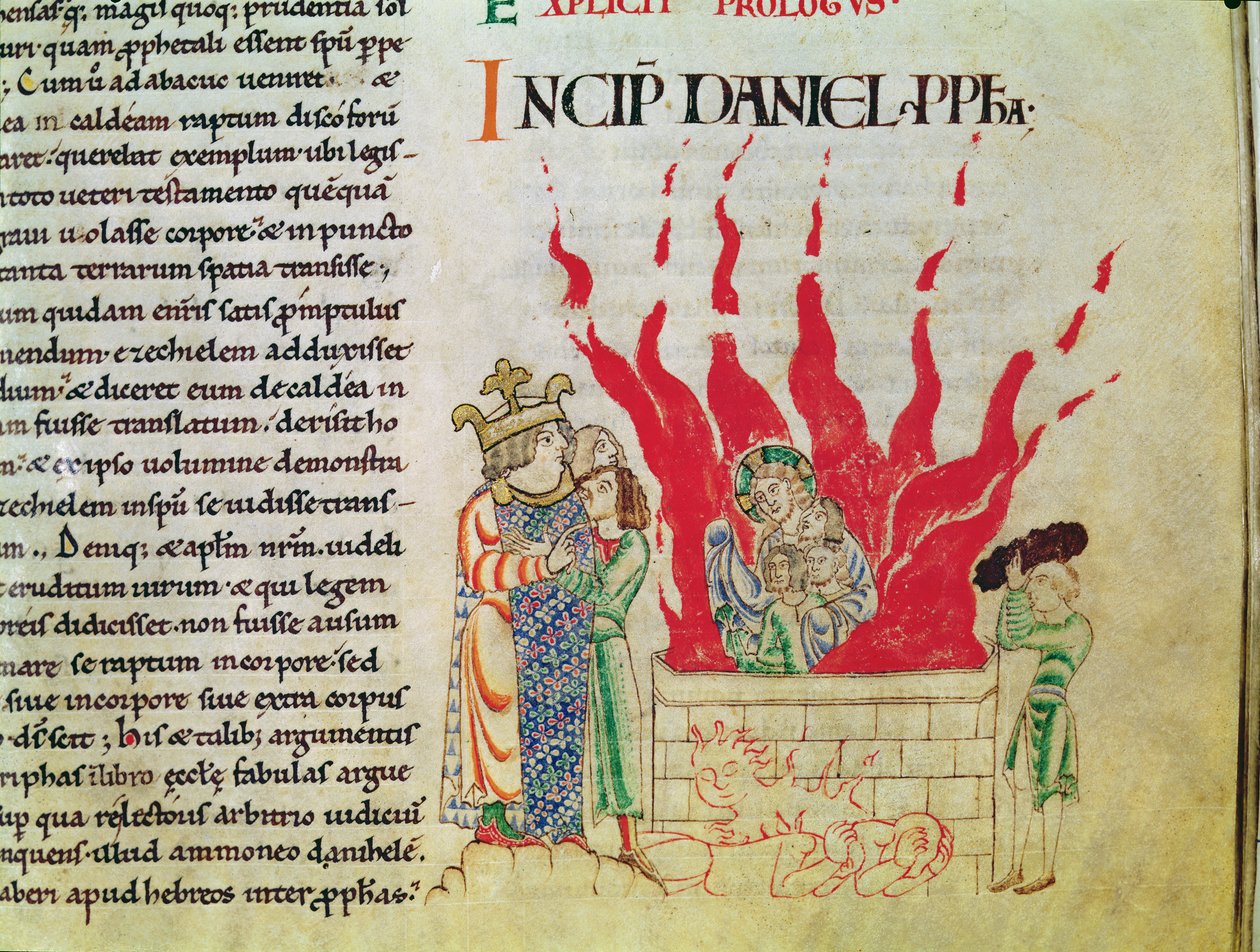 hensasq; magis quoq; prudentia sol
uri quam ꝓphetali essent spū ꝑpe
; Cum ů ad abacuc ueniret & 
ea in caldéam raptum discóforū
aret. querebat exemplum. ubi legis-
toto ueteri testamento quēquā
graui uolasse corpore & in puncto
tanta terrarum spatia transisse;
um quidam enīs satis ꝓmptulus
uendum. ezechielem adduxisset
dium & diceret eum de caldéa in
am fuisse translatum. derisit ho
n & ex ipso uolumine demonstra
zechielem in spū se uidisse trans-
um., Deniq; & apłm nrm. uideli
t eruditum uirum. & qui legem
breis didicisset. non fuisse ausum
mare se raptum in corpore. sed
siue in corpore siue extra corpus
o. ds̄ scit; his & talib; argumentis
riphas ī libro ęcclę fabulas argue
sup qua re lectoris arbitrio iudiciū
nquens. illud ammoneo danihelē.
haberi apud hebreos inter ꝓphas.
EXPLICIT PROLOGVS.
INCIP̄ DANIEL PPħA.